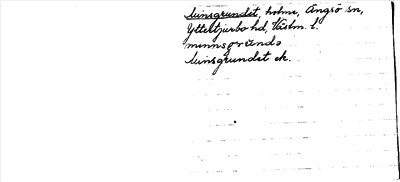 Minsgrundet, holme, Ängsö sn,
Yttertjurbo hd, Västm. l.
minnsgrundə
Minsgrundet ek.